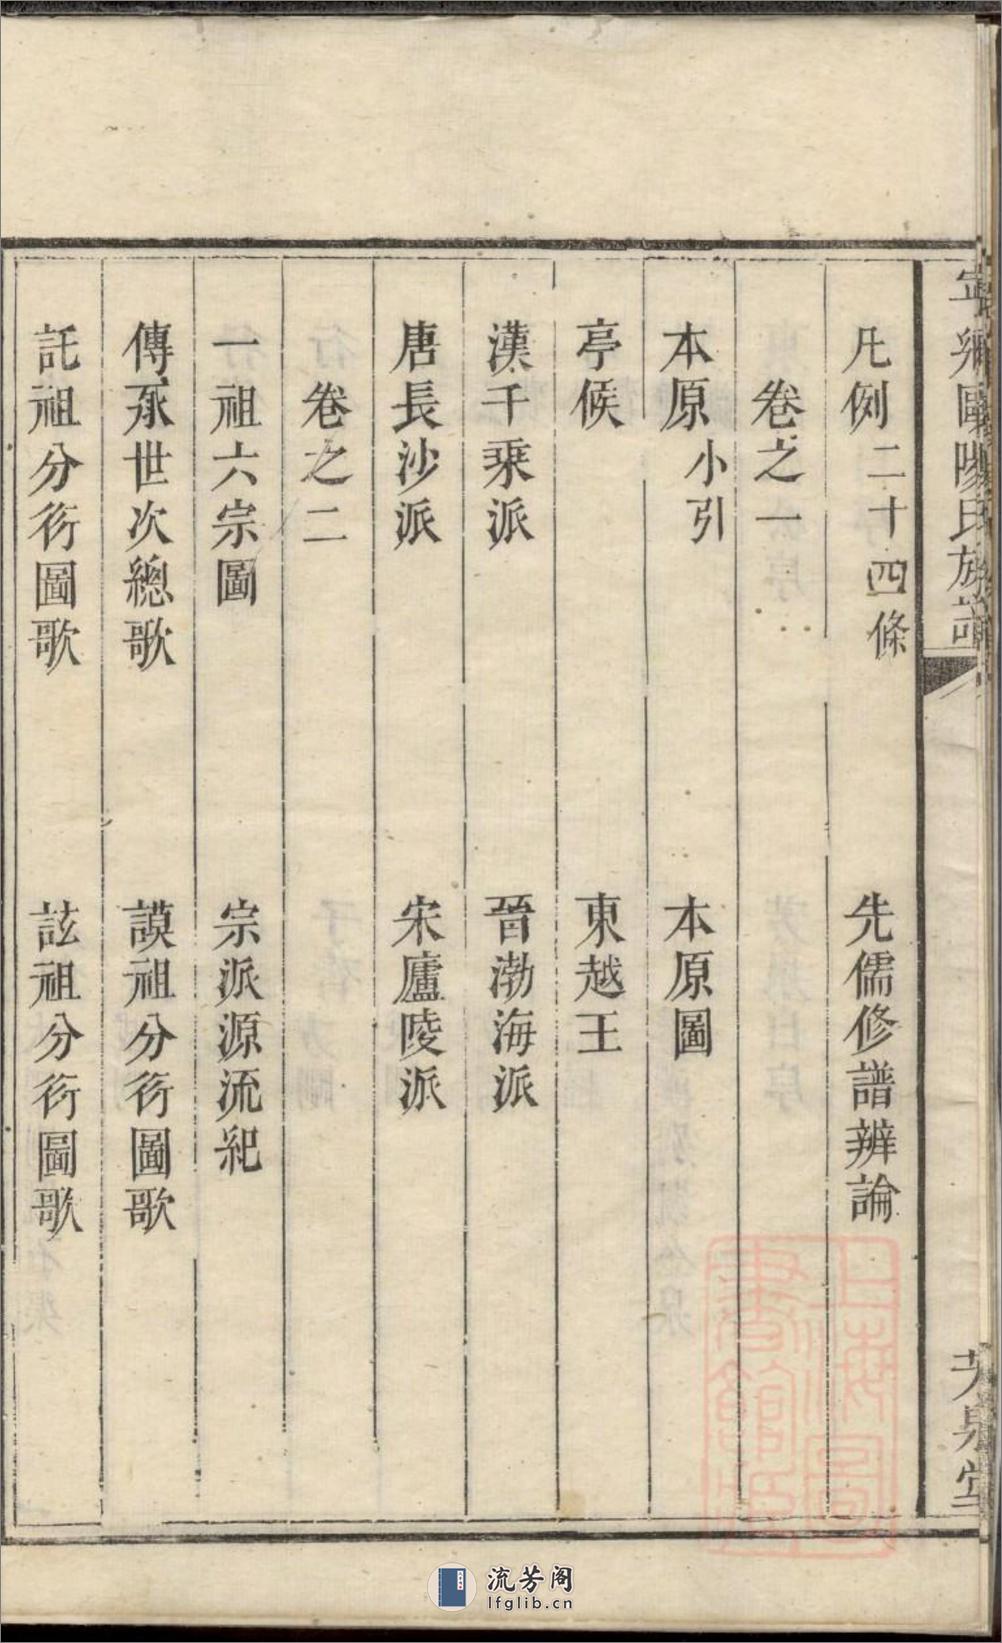 寧鄉歐陽氏族譜
凡例二十四條　先儒修譜辨論
卷之一
本原小引　本原圖
亭侯　東越王
漢千乘派　晉渤海派
唐長沙派　宋廬陵派
卷之二
一祖六宗圖　宗派源流紀
傳承世次總歌　謨祖分衍圖歌
託祖分衍圖歌　詃祖分衍圖歌
上海圖書館藏
流芳阁
lfglib.cn